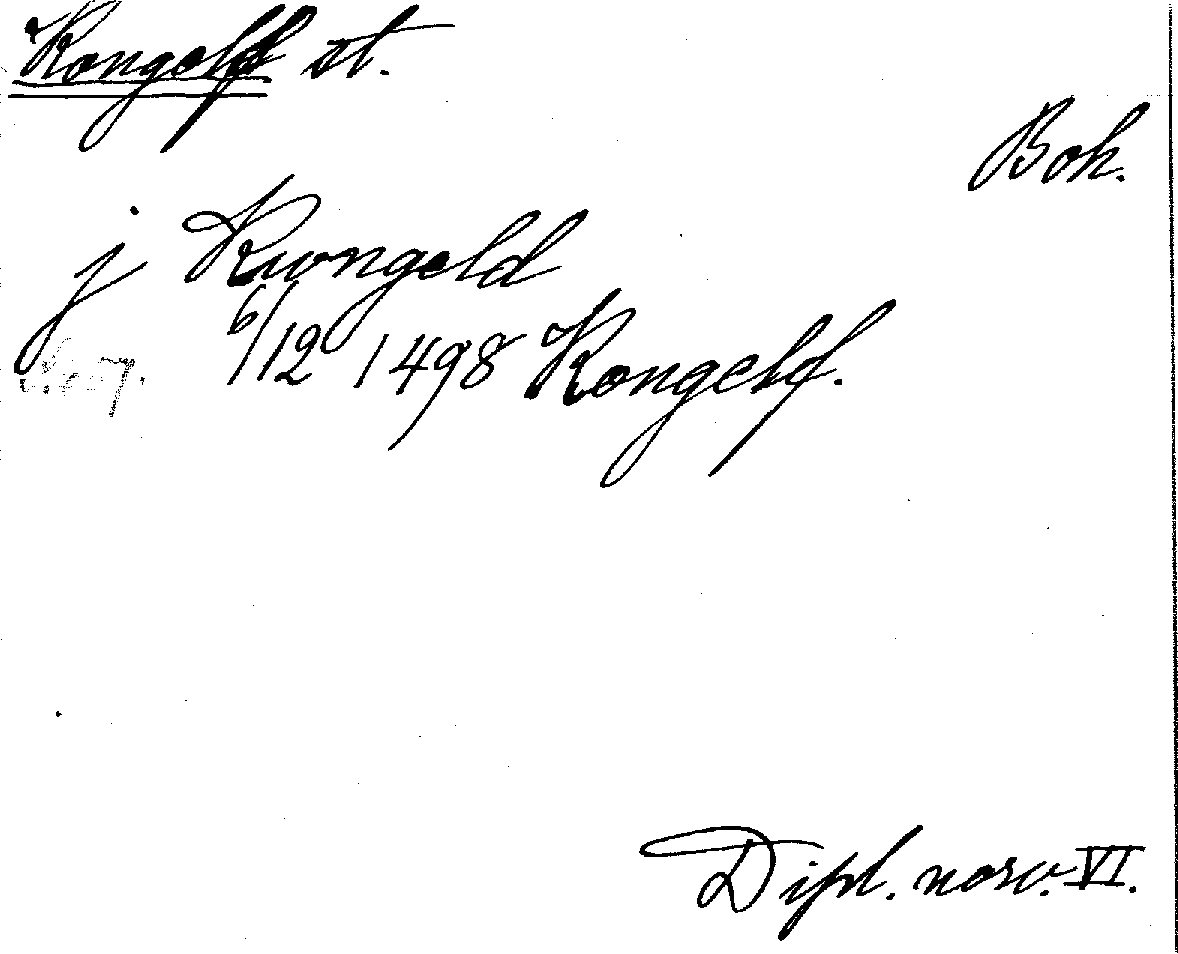 Kongelf st.
Boh.
j Kwongeld
6/12 1498 Kongelf.
Dipl. norv. VI.